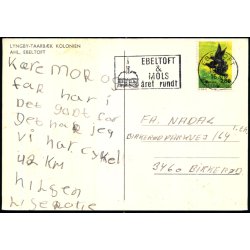 LYNGBY-TAARBÆK KOLONIEN
AHL. EBELTOFT
EBELTOFT
&
MOLS
året rundt
Kære MOR og
far har i
Det godt for
Det har jeg
vi har cykel
42 KM
hilsen
FR. NADAL
3460 BIRKERØD